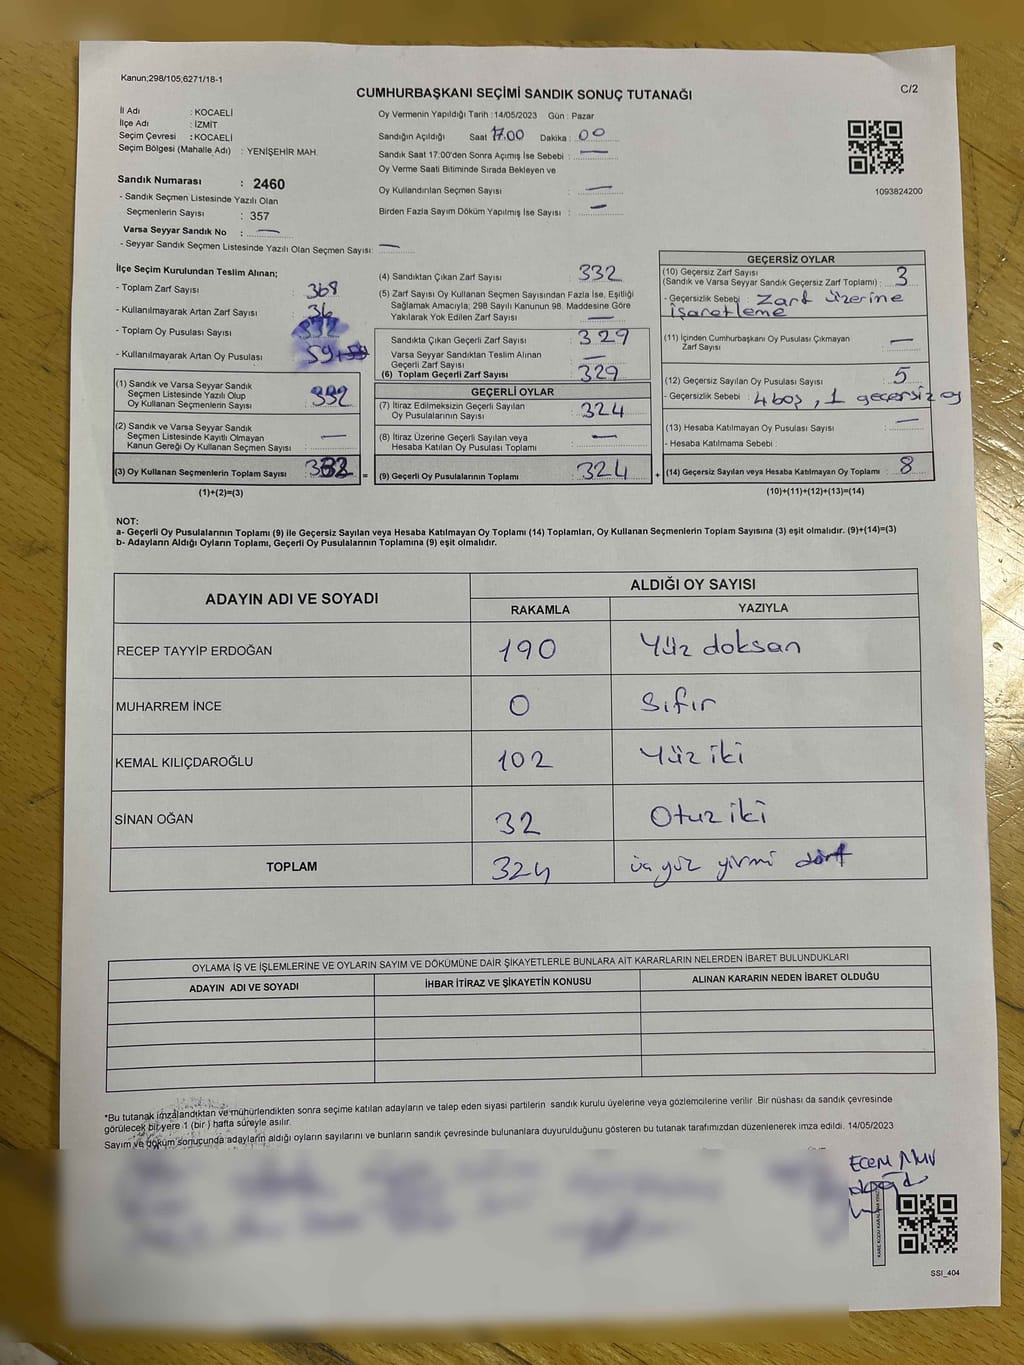 Kanun;298/105;6271/18-1
C/2
CUMHURBAŞKANI SEÇİMİ SANDIK SONUÇ TUTANAĞI
İl Adı : KOCAELİ
İlçe Adı : İZMİT
Seçim Çevresi : KOCAELİ
Seçim Bölgesi (Mahalle Adı) : YENİŞEHİR MAH.
Sandık Numarası : 2460
- Sandık Seçmen Listesinde Yazılı Olan
Seçmenlerin Sayısı : 357
Varsa Seyyar Sandık No : —
- Seyyar Sandık Seçmen Listesinde Yazılı Olan Seçmen Sayısı: —
Oy Vermenin Yapıldığı Tarih :14/05/2023 Gün : Pazar
Sandığın Açıldığı Saat 17.00 Dakika : 00
Sandık Saat 17:00'den Sonra Açımış İse Sebebi : —
Oy Verme Saati Bitiminde Sırada Bekleyen ve
Oy Kullandırılan Seçmen Sayısı : —
Birden Fazla Sayım Döküm Yapılmış İse Sayısı : —
1093824200
İlçe Seçim Kurulundan Teslim Alınan;
- Toplam Zarf Sayısı : 368
- Kullanılmayarak Artan Zarf Sayısı : 36
- Toplam Oy Pusulası Sayısı :
- Kullanılmayarak Artan Oy Pusulası : 59
(1) Sandık ve Varsa Seyyar Sandık
Seçmen Listesinde Yazılı Olup
Oy Kullanan Seçmenlerin Sayısı : 332
(2) Sandık ve Varsa Seyyar Sandık
Seçmen Listesinde Kayıtlı Olmayan
Kanun Gereği Oy Kullanan Seçmen Sayısı : —
(3) Oy Kullanan Seçmenlerin Toplam Sayısı : 332 =
(1)+(2)=(3)
(4) Sandıktan Çıkan Zarf Sayısı : 332
(5) Zarf Sayısı Oy Kullanan Seçmen Sayısından Fazla İse, Eşitliği
Sağlamak Amacıyla, 298 Sayılı Kanunun 98. Maddesine Göre
Yakılarak Yok Edilen Zarf Sayısı : —
Sandıkta Çıkan Geçerli Zarf Sayısı : 329
Varsa Seyyar Sandıktan Teslim Alınan
Geçerli Zarf Sayısı : —
(6) Toplam Geçerli Zarf Sayısı : 329
GEÇERLİ OYLAR
(7) İtiraz Edilmeksizin Geçerli Sayılan
Oy Pusulalarının Sayısı : 324
(8) İtiraz Üzerine Geçerli Sayılan veya
Hesaba Katılan Oy Pusulaları Toplamı : —
(9) Geçerli Oy Pusulalarının Toplamı : 324 +
GEÇERSİZ OYLAR
(10) Geçersiz Zarf Sayısı
(Sandık ve Varsa Seyyar Sandık Geçersiz Zarf Toplamı) : 3
- Geçersizlik Sebebi : Zarf üzerine
işaretleme
(11) İçinden Cumhurbaşkanı Oy Pusulası Çıkmayan
Zarf Sayısı : —
(12) Geçersiz Sayılan Oy Pusulası Sayısı : 5
- Geçersizlik Sebebi : 4 boş, 1 geçersiz oy
(13) Hesaba Katılmayan Oy Pusulası Sayısı : —
- Hesaba Katılmama Sebebi :
(14) Geçersiz Sayılan veya Hesaba Katılmayan Oy Toplamı : 8
(10)+(11)+(12)+(13)=(14)
NOT:
a- Geçerli Oy Pusulalarının Toplamı (9) ile Geçersiz Sayılan veya Hesaba Katılmayan Oy Toplamı (14) Toplamları, Oy Kullanan Seçmenlerin Toplam Sayısına (3) eşit olmalıdır. (9)+(14)=(3)
b- Adayların Aldığı Oyların Toplamı, Geçerli Oy Pusulalarının Toplamına (9) eşit olmalıdır.
ADAYIN ADI VE SOYADI ALDIĞI OY SAYISI
RAKAMLA YAZIYLA
RECEP TAYYİP ERDOĞAN 190 Yüz doksan
MUHARREM İNCE 0 Sıfır
KEMAL KILIÇDAROĞLU 102 Yüz iki
SİNAN OĞAN 32 Otuz iki
TOPLAM 324 üç yüz yirmi dört
OYLAMA İŞ VE İŞLEMLERİNE VE OYLARIN SAYIM VE DÖKÜMÜNE DAİR ŞİKAYETLERLE BUNLARA AİT KARARLARIN NELERDEN İBARET BULUNDUKLARI
ADAYIN ADI VE SOYADI İHBAR İTİRAZ VE ŞİKAYETİN KONUSU ALINAN KARARIN NEDEN İBARET OLDUĞU
*Bu tutanak imzalandıktan ve mühürlendikten sonra seçime katılan adayların ve talep eden siyasi partilerin sandık kurulu üyelerine veya gözlemcilerine verilir .Bir nüshası da sandık çevresinde
görülecek bir yere 1 (bir ) hafta süreyle asılır.
Sayım ve döküm sonucunda adayların aldığı oyların sayılarını ve bunların sandık çevresinde bulunanlara duyurulduğunu gösteren bu tutanak tarafımızdan düzenlenerek imza edildi. 14/05/2023
Ecem
SSI_404